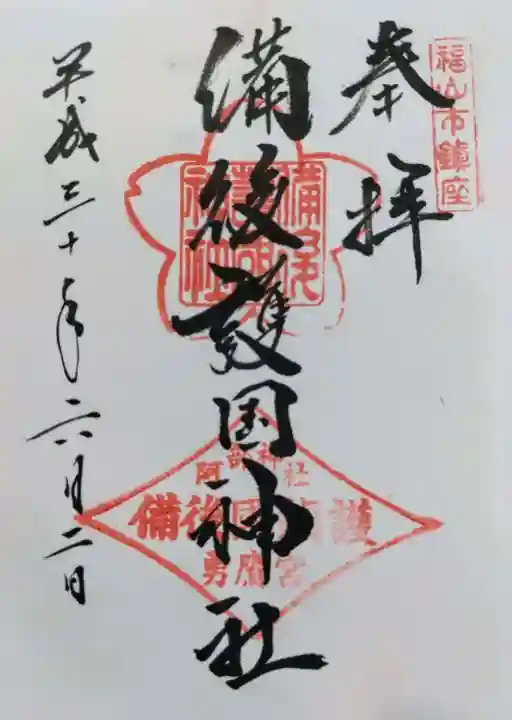 福山市鎮座
奉拝
備後護国神社
平成三十年六月二日
備後護国神社
阿部神社
勇鷹宮